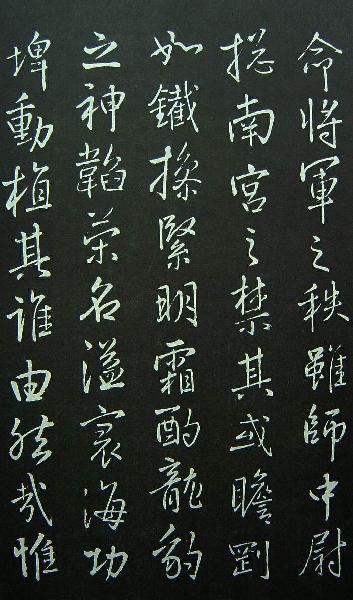 命將軍之秩雖師中尉
摠南宮之禁其或瞻剛
如鐵操緊明霜酌龍豹
之神韜榮名溢寰海功
埤動植其誰由然哉惟